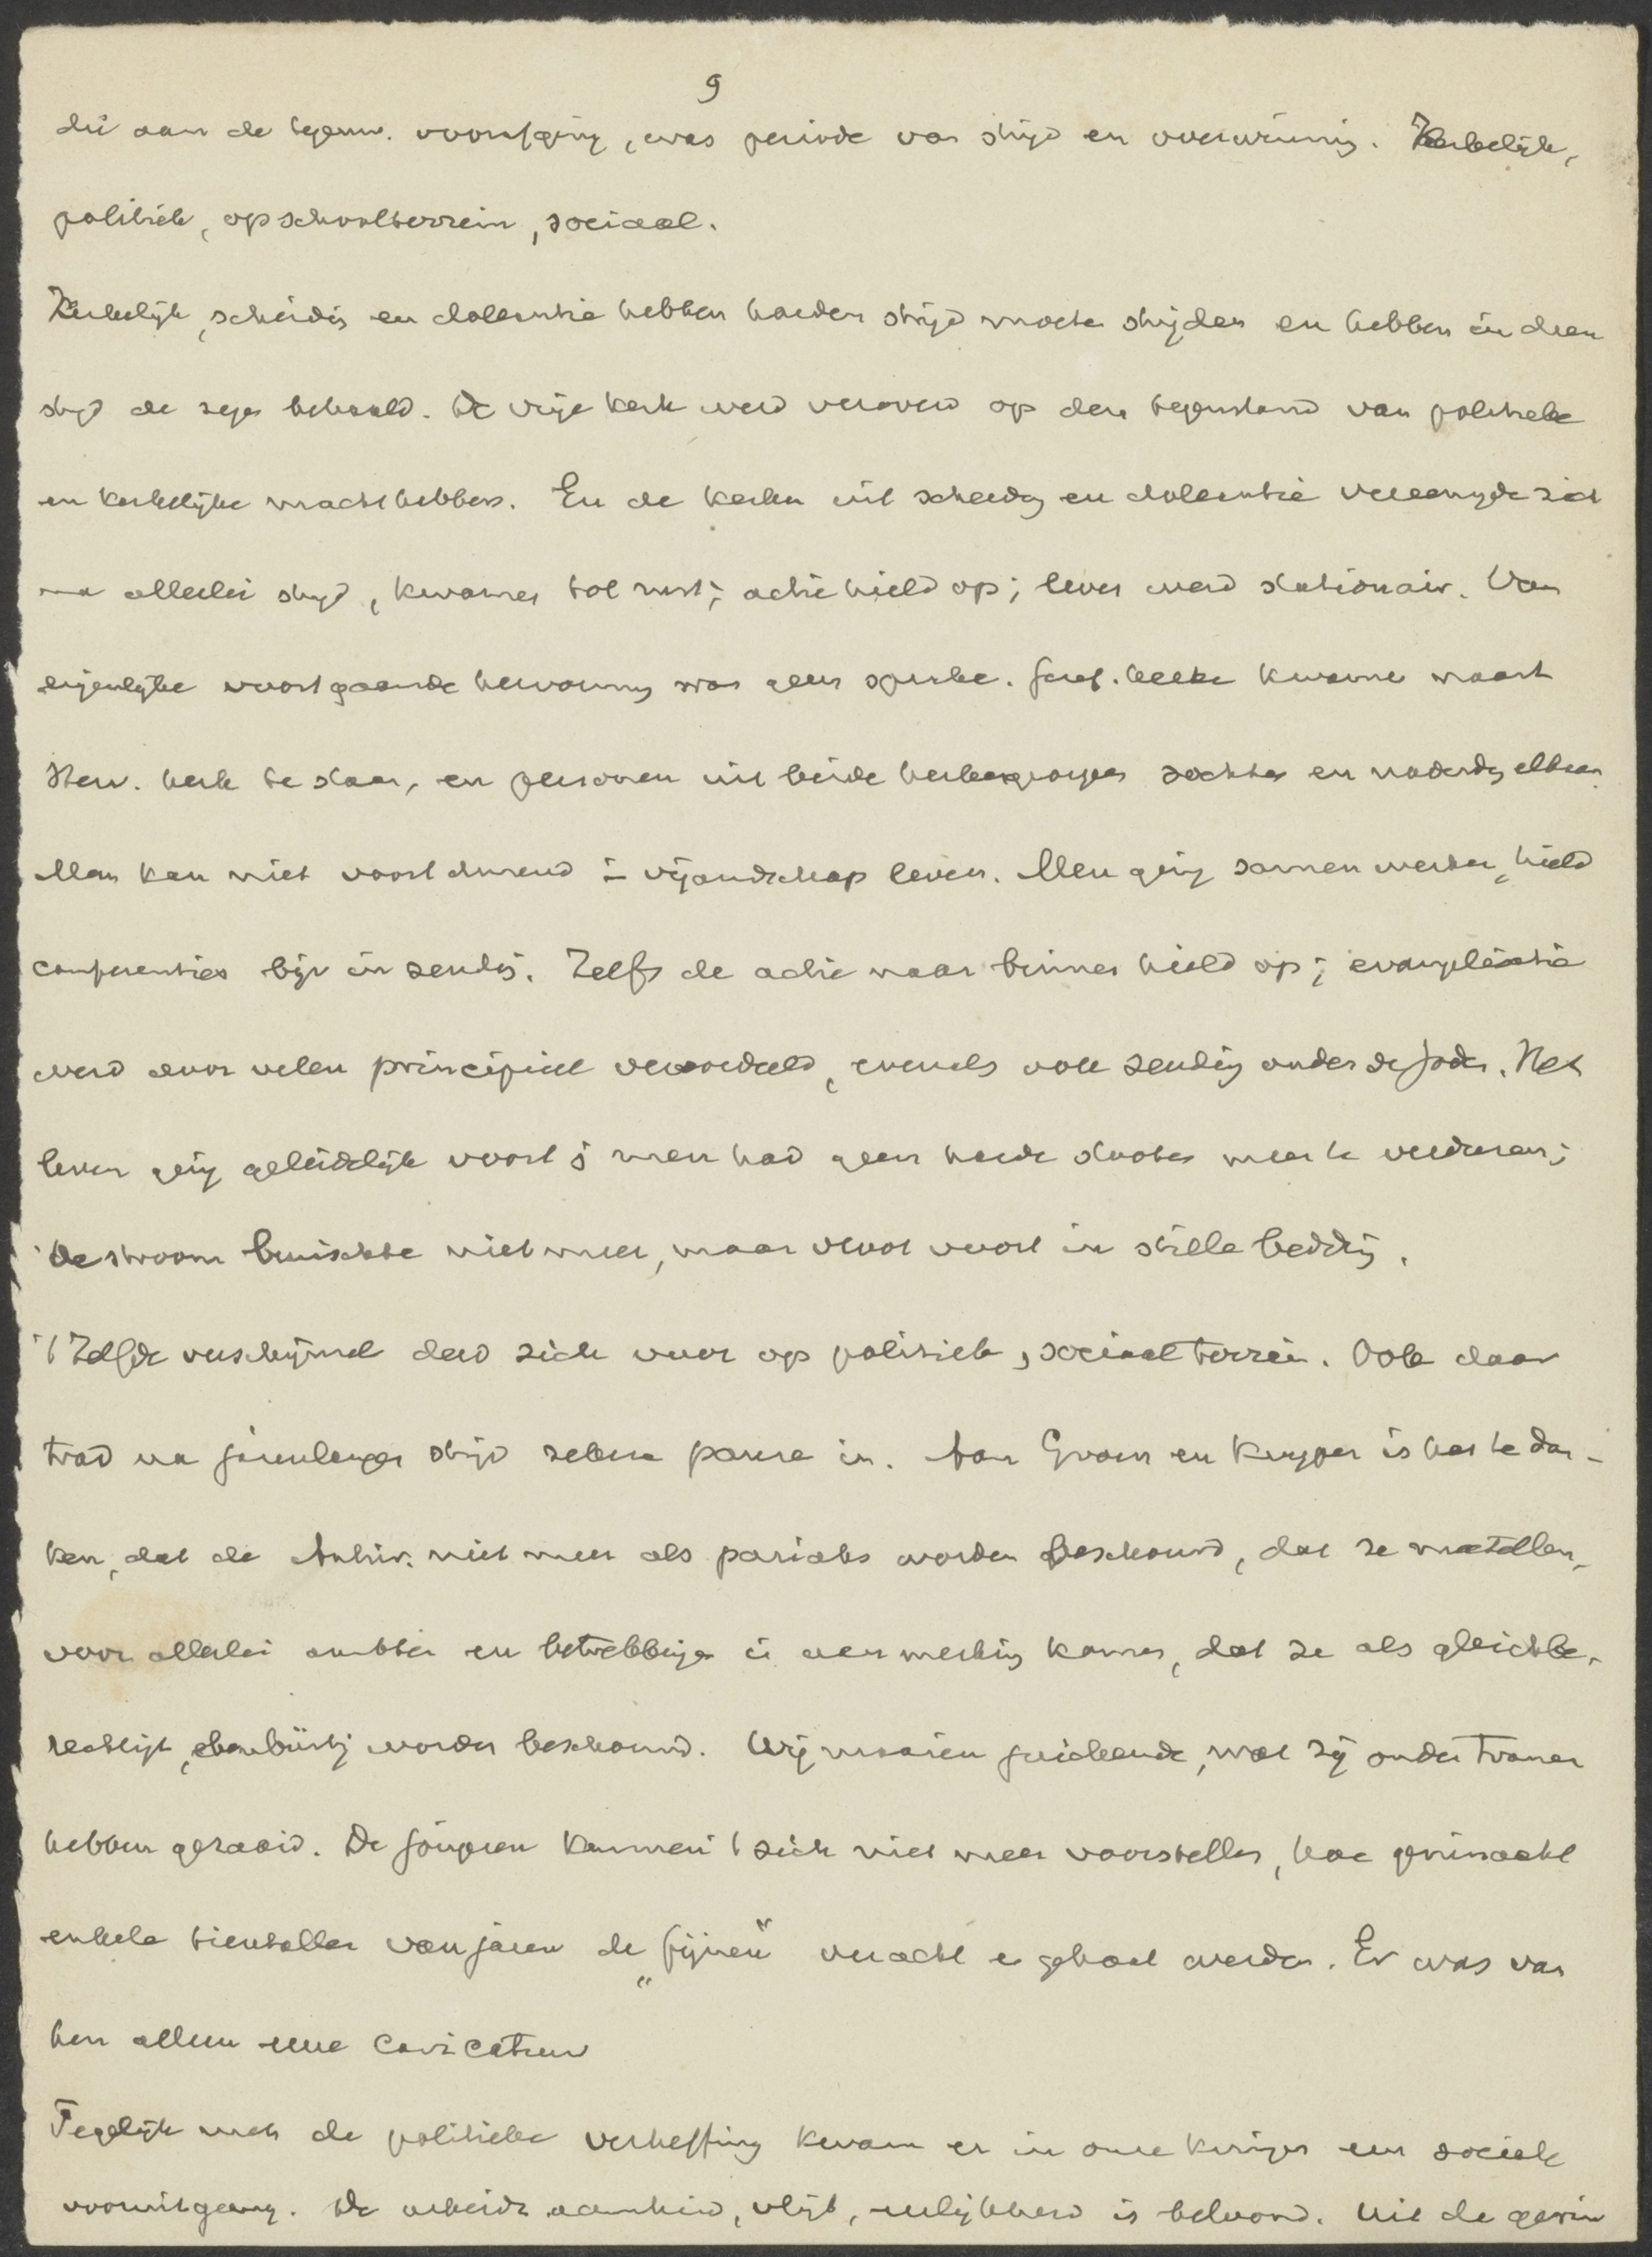 9
die aan de tegenw. voorafging, was periode van strijd en overwinning. Kerkelijk,
politiek, op schoolterrein, sociaal.
Kerkelijk, scheiding en doleantie hebben harden strijd moeten strijden en hebben in dien
strijd de zege behaald. De vrije kerk werd veroverd op den tegenstand van politieke
en kerkelijke machthebbers. En de kerken uit scheiding en doleantie vereenigde zich
na allerlei strijd, kwamen tot rust; actie hield op; leven werd stationair. Van
eigenlijke voortgaande hervorming was geen sprake. Geref. kerke kwame naast
Herv. kerk te staan, en personen uit beide kerkengroepen zochten en naderden elkaar.
Man kan niet voortdurend in vijandschap leven. Men ging samen werken, hield
conferenties bijv in zending. Zelfs de actie naar binnen hield op; evangelisatie
werd door velen principieel veroordeeld, evenals ook zending onder de Joden. Het
leven ging geleidelijk voort; men had geen harde stooten meer te verduren;
De stroom bruischte niet meer, maar vloot voort in stille bedding.
't Zelfde verschijnsel deed zich voor op politiek, sociaal terrein. Ook daar
trad na jarenlangen strijd zekere pauze in. Aan Groen en Kuyper is het te dan-
ken, dat de Antirev. niet meer als pariahs worden beschouwd, dat ze meetellen,
voor allerlei ambten en betrekkingen in aanmerking komen, dat ze als gleichbe-
rechtigt, ebenbürtig worden beschouwd. Wij maaien juichende, wat zij onder tranen
hebben gezaaid. De jongeren kunnen 't zich niet meer voorstellen, hoe geminacht
enkele tientallen van jaren de „fijnen" veracht en gehaat werden. Er was van
hen alleen eene caricatuur
Tegelijk met de politieke verheffing kwam er in onze kringen een sociale
vooruitgang. De arbeidzaamheid, vlijt, eerlijkheid is beloond. Uit de